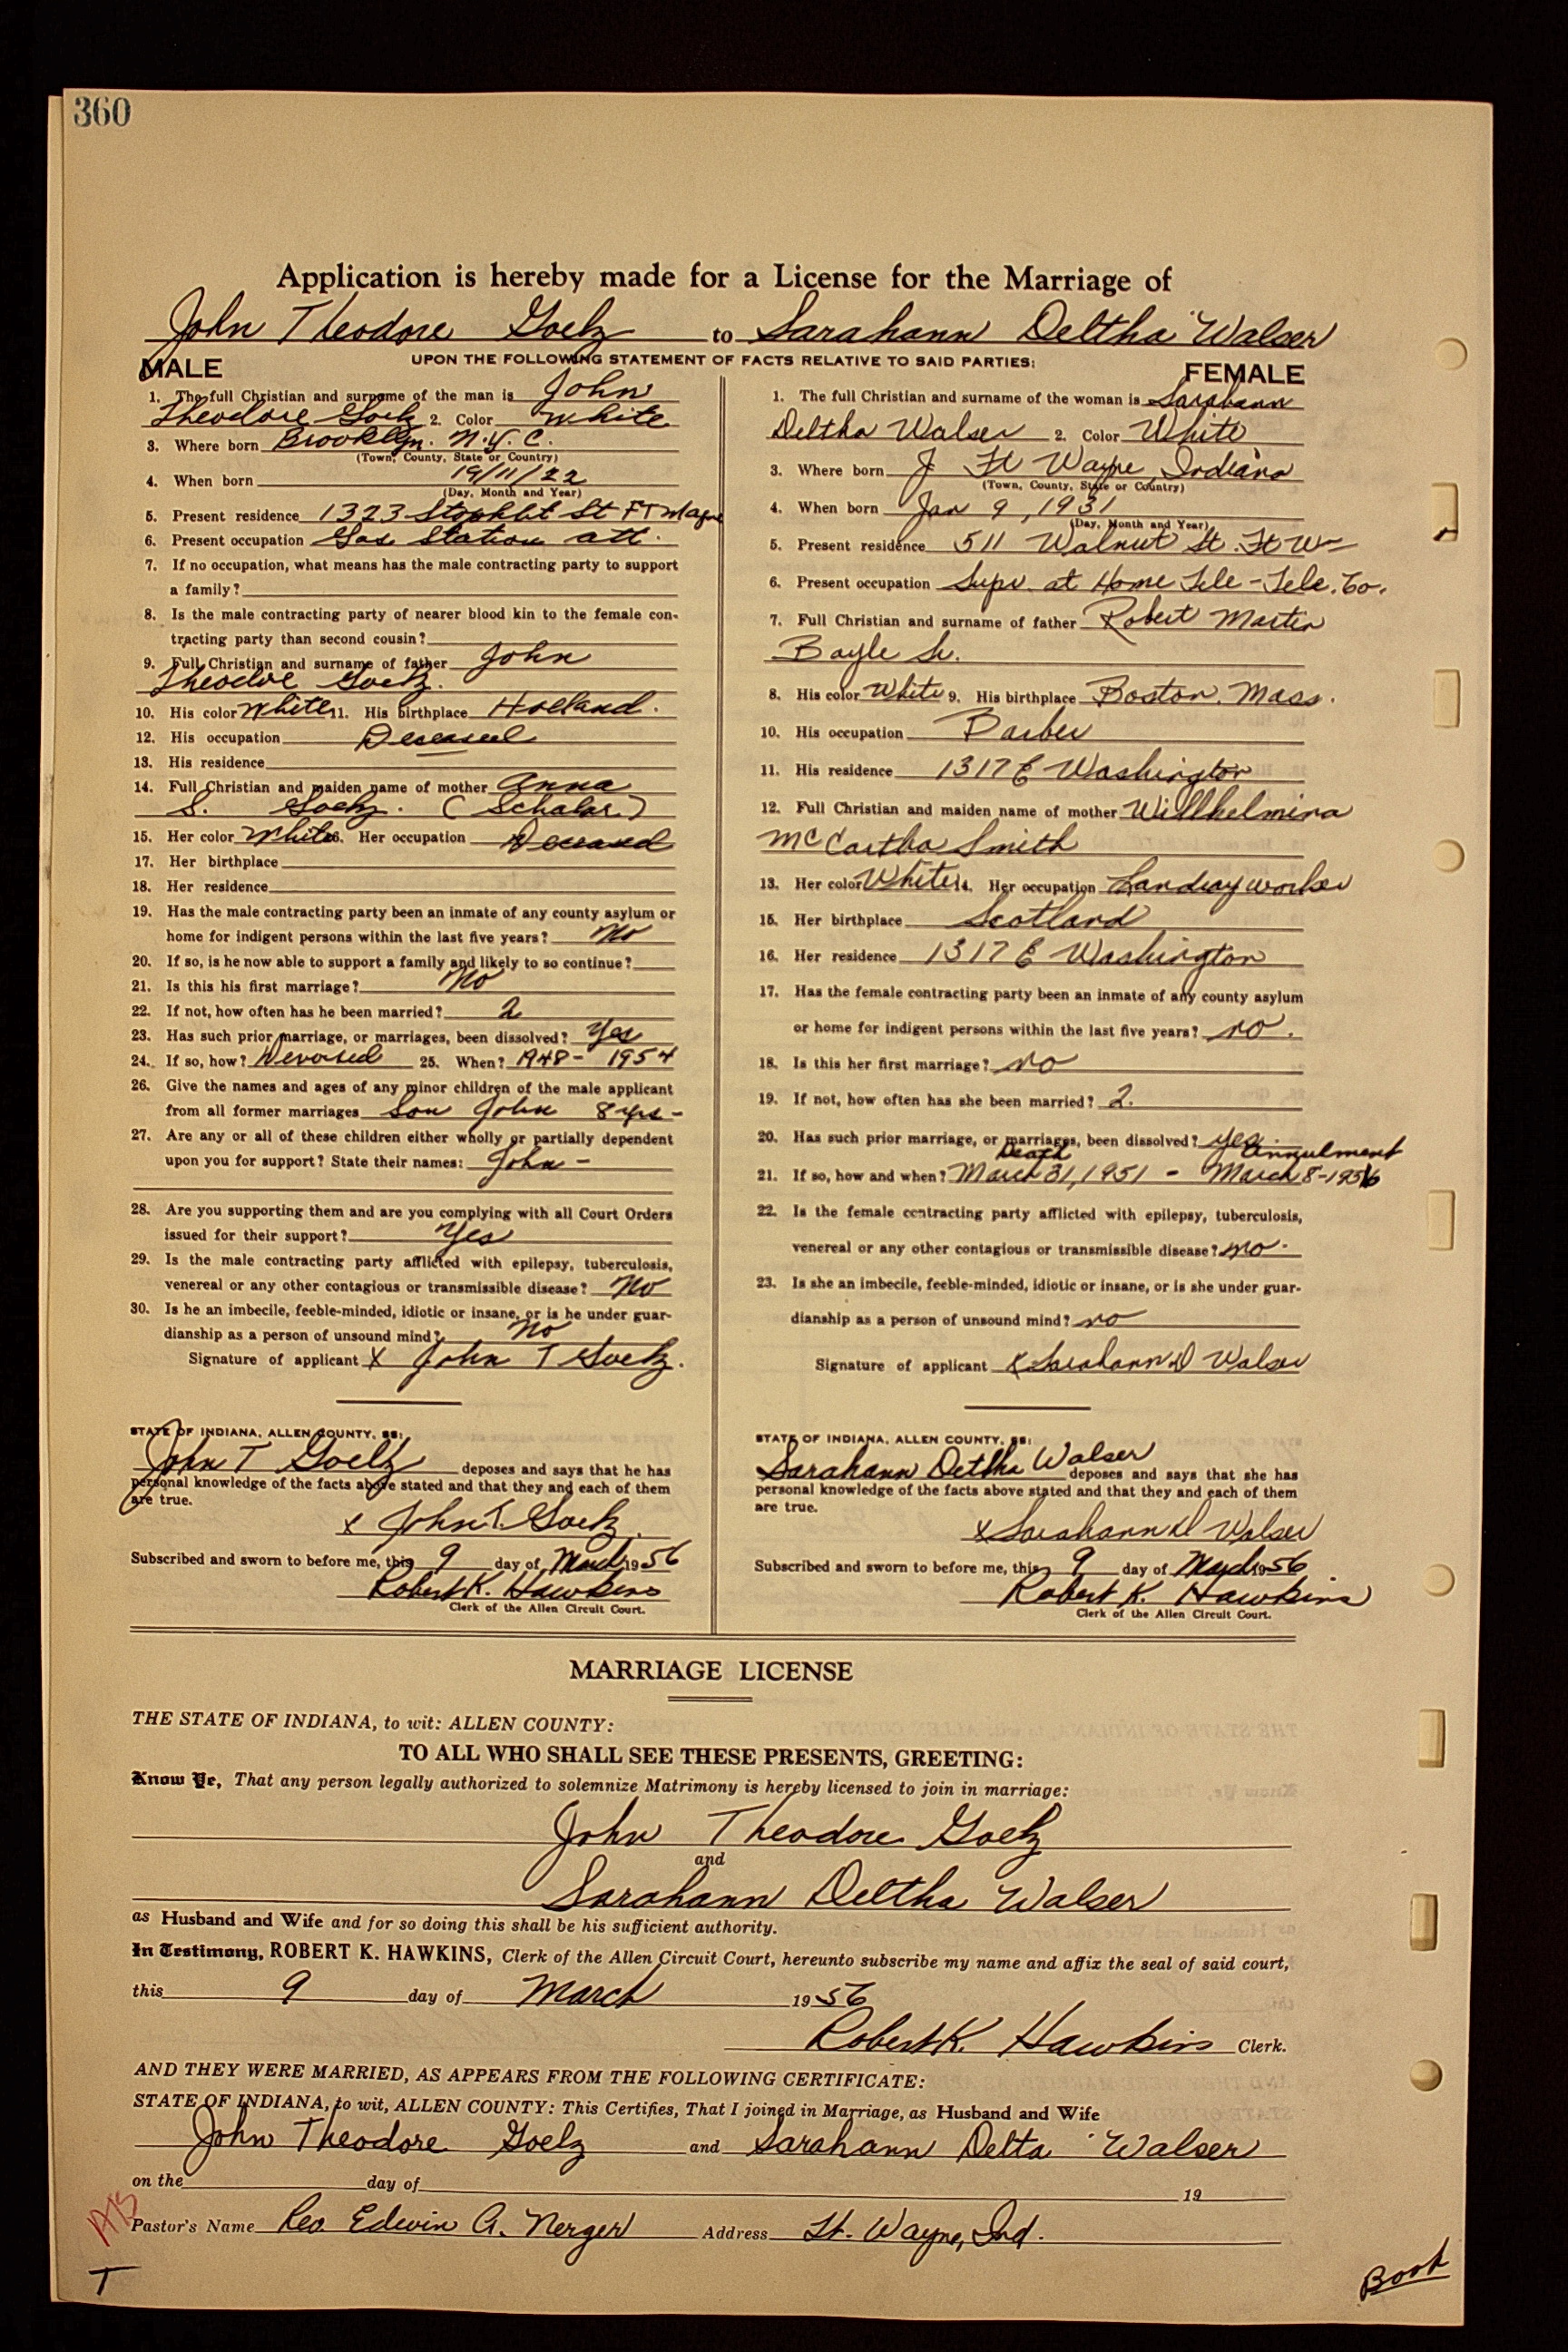 360
Application is hereby made for a License for the Marriage of
John Theodore Goelz to Sarahann Deltha Walser
UPON THE FOLLOWING STATEMENT OF FACTS RELATIVE TO SAID PARTIES:
MALE
1. The full Christian and surname of the man is John
Theodore Goelz 2. Color White
3. Where born Brooklyn. N.Y.C.
(Town, County, State or Country)
4. When born 19/11/22
(Day, Month and Year)
5. Present residence 1323 St FT Wayne
6. Present occupation Gas Station att.
7. If no occupation, what means has the male contracting party to support
a family?
8. Is the male contracting party of nearer blood kin to the female con-
tracting party than second cousin?
9. Full Christian and surname of father John
Theodore Goelz.
10. His color White 11. His birthplace Holland.
12. His occupation Deceased
13. His residence
14. Full Christian and maiden name of mother Anna
S. Goelz. (Schalar.)
15. Her color White 16. Her occupation Deceased
17. Her birthplace
18. Her residence
19. Has the male contracting party been an inmate of any county asylum or
home for indigent persons within the last five years? No
20. If so, is he now able to support a family and likely to so continue?
21. Is this his first marriage? No
22. If not, how often has he been married? 2
23. Has such prior marriage, or marriages, been dissolved? Yes
24. If so, how? Devorsed 25. When? 1948 - 1954
26. Give the names and ages of any minor children of the male applicant
from all former marriages Son John 8 yrs -
27. Are any or all of these children either wholly or partially dependent
upon you for support? State their names: John -
28. Are you supporting them and are you complying with all Court Orders
issued for their support? Yes
29. Is the male contracting party afflicted with epilepsy, tuberculosis,
venereal or any other contagious or transmissible disease? No
30. Is he an imbecile, feeble-minded, idiotic or insane, or is he under guar-
dianship as a person of unsound mind? No
Signature of applicant x John T Goelz.
STATE OF INDIANA, ALLEN COUNTY, SS:
John T Goelz deposes and says that he has
personal knowledge of the facts above stated and that they and each of them
are true.
x John T. Goelz.
Subscribed and sworn to before me, this 9 day of March 1956
Robert K. Hawkins
Clerk of the Allen Circuit Court.
FEMALE
1. The full Christian and surname of the woman is Sarahann
Deltha Walser 2. Color White
3. Where born Ft Wayne, Indiana
(Town, County, State or Country)
4. When born Jan 9, 1931
(Day, Month and Year)
5. Present residence 511 Walnut St. Ft W
6. Present occupation Supv. at Home Tele - Tele. Co.
7. Full Christian and surname of father Robert Martin
Boyle Sr.
8. His color White 9. His birthplace Boston, Mass.
10. His occupation Barber
11. His residence 1317 E Washington
12. Full Christian and maiden name of mother Willhelmina
McCartha Smith
13. Her color White 14. Her occupation Landray worker
15. Her birthplace Scotland
16. Her residence 1317 E Washington
17. Has the female contracting party been an inmate of any county asylum
or home for indigent persons within the last five years? no.
18. Is this her first marriage? no
19. If not, how often has she been married? 2.
20. Has such prior marriage, or marriages, been dissolved? yes.
Death Annulment
21. If so, how and when? March 31, 1951 - March 8-1956
22. Is the female contracting party afflicted with epilepsy, tuberculosis,
venereal or any other contagious or transmissible disease? no.
23. Is she an imbecile, feeble-minded, idiotic or insane, or is she under guar-
dianship as a person of unsound mind? no
Signature of applicant x Sarahann D Walser
STATE OF INDIANA, ALLEN COUNTY, SS:
Sarahann Deltha Walser deposes and says that she has
personal knowledge of the facts above stated and that they and each of them
are true.
x Sarahann D Walser
Subscribed and sworn to before me, this 9 day of March 1956
Robert K. Hawkins
Clerk of the Allen Circuit Court.
MARRIAGE LICENSE
THE STATE OF INDIANA, to wit: ALLEN COUNTY:
TO ALL WHO SHALL SEE THESE PRESENTS, GREETING:
Know Ye, That any person legally authorized to solemnize Matrimony is hereby licensed to join in marriage:
John Theodore Goelz
and
Sarahann Deltha Walser
as Husband and Wife and for so doing this shall be his sufficient authority.
In Testimony, ROBERT K. HAWKINS, Clerk of the Allen Circuit Court, hereunto subscribe my name and affix the seal of said court,
this 9 day of March 1956
Robert K. Hawkins Clerk.
AND THEY WERE MARRIED, AS APPEARS FROM THE FOLLOWING CERTIFICATE:
STATE OF INDIANA, to wit, ALLEN COUNTY: This Certifies, That I joined in Marriage, as Husband and Wife
John Theodore Goelz and Sarahann Delta Walser
on the day of 19
Pastor's Name Rev Edwin A. Nerger Address Ft. Wayne, Ind.
T
Book